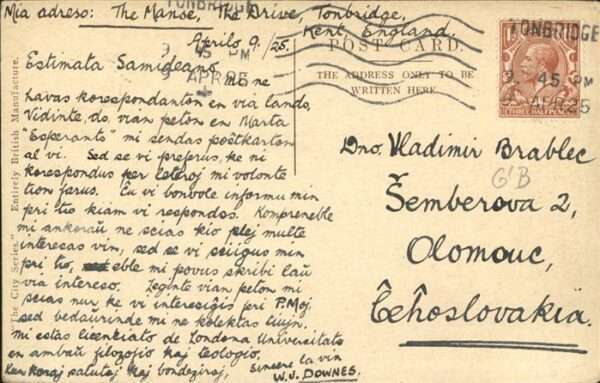 Mia adreso: The Manse, The Drive, Tonbridge,
Kent, England.
Aprilo 9./25.
Estimata Samideano,
mi ne
havas korespondanton en via lando,
Vidinte, do, vian peton en Marta
"Esperanto" mi sendas poŝtkarton
al vi. Sed se vi preferus, ke ni
korespondus per leteroj mi volonte
tion farus. Ĉu vi bonvole informu min
pri tio kiam vi respondos. Kompreneble
mi ankoraŭ ne scias kio plej multe
interesas vin, sed se vi sciigus min
pri tio, eble mi povus skribi laŭ
via intereso. Leginte vian peton mi
scias nur ke vi interesiĝis pri P.Moj,
sed bedaŭrinde mi ne kolektas tiujn.
Mi estas licenciato de Londona Universitato
en ambaŭ filozofio kaj teologio.
Kun koraj salutoj kaj bondeziroj,
Sincere la via
W. J. DOWNES.
POST CARD.
THE ADDRESS ONLY TO BE
WRITTEN HERE.
TONBRIDGE
9 45 PM
9 APR 25
TONBRIDGE
9 45 PM
9 APR 25
THREE HALFPENCE
Dno. Vladimir Brablec
G'B
Šemberova 2,
Olomouc,
Ĉeĥoslovakia.
"The City Series." Entirely British Manufacture.